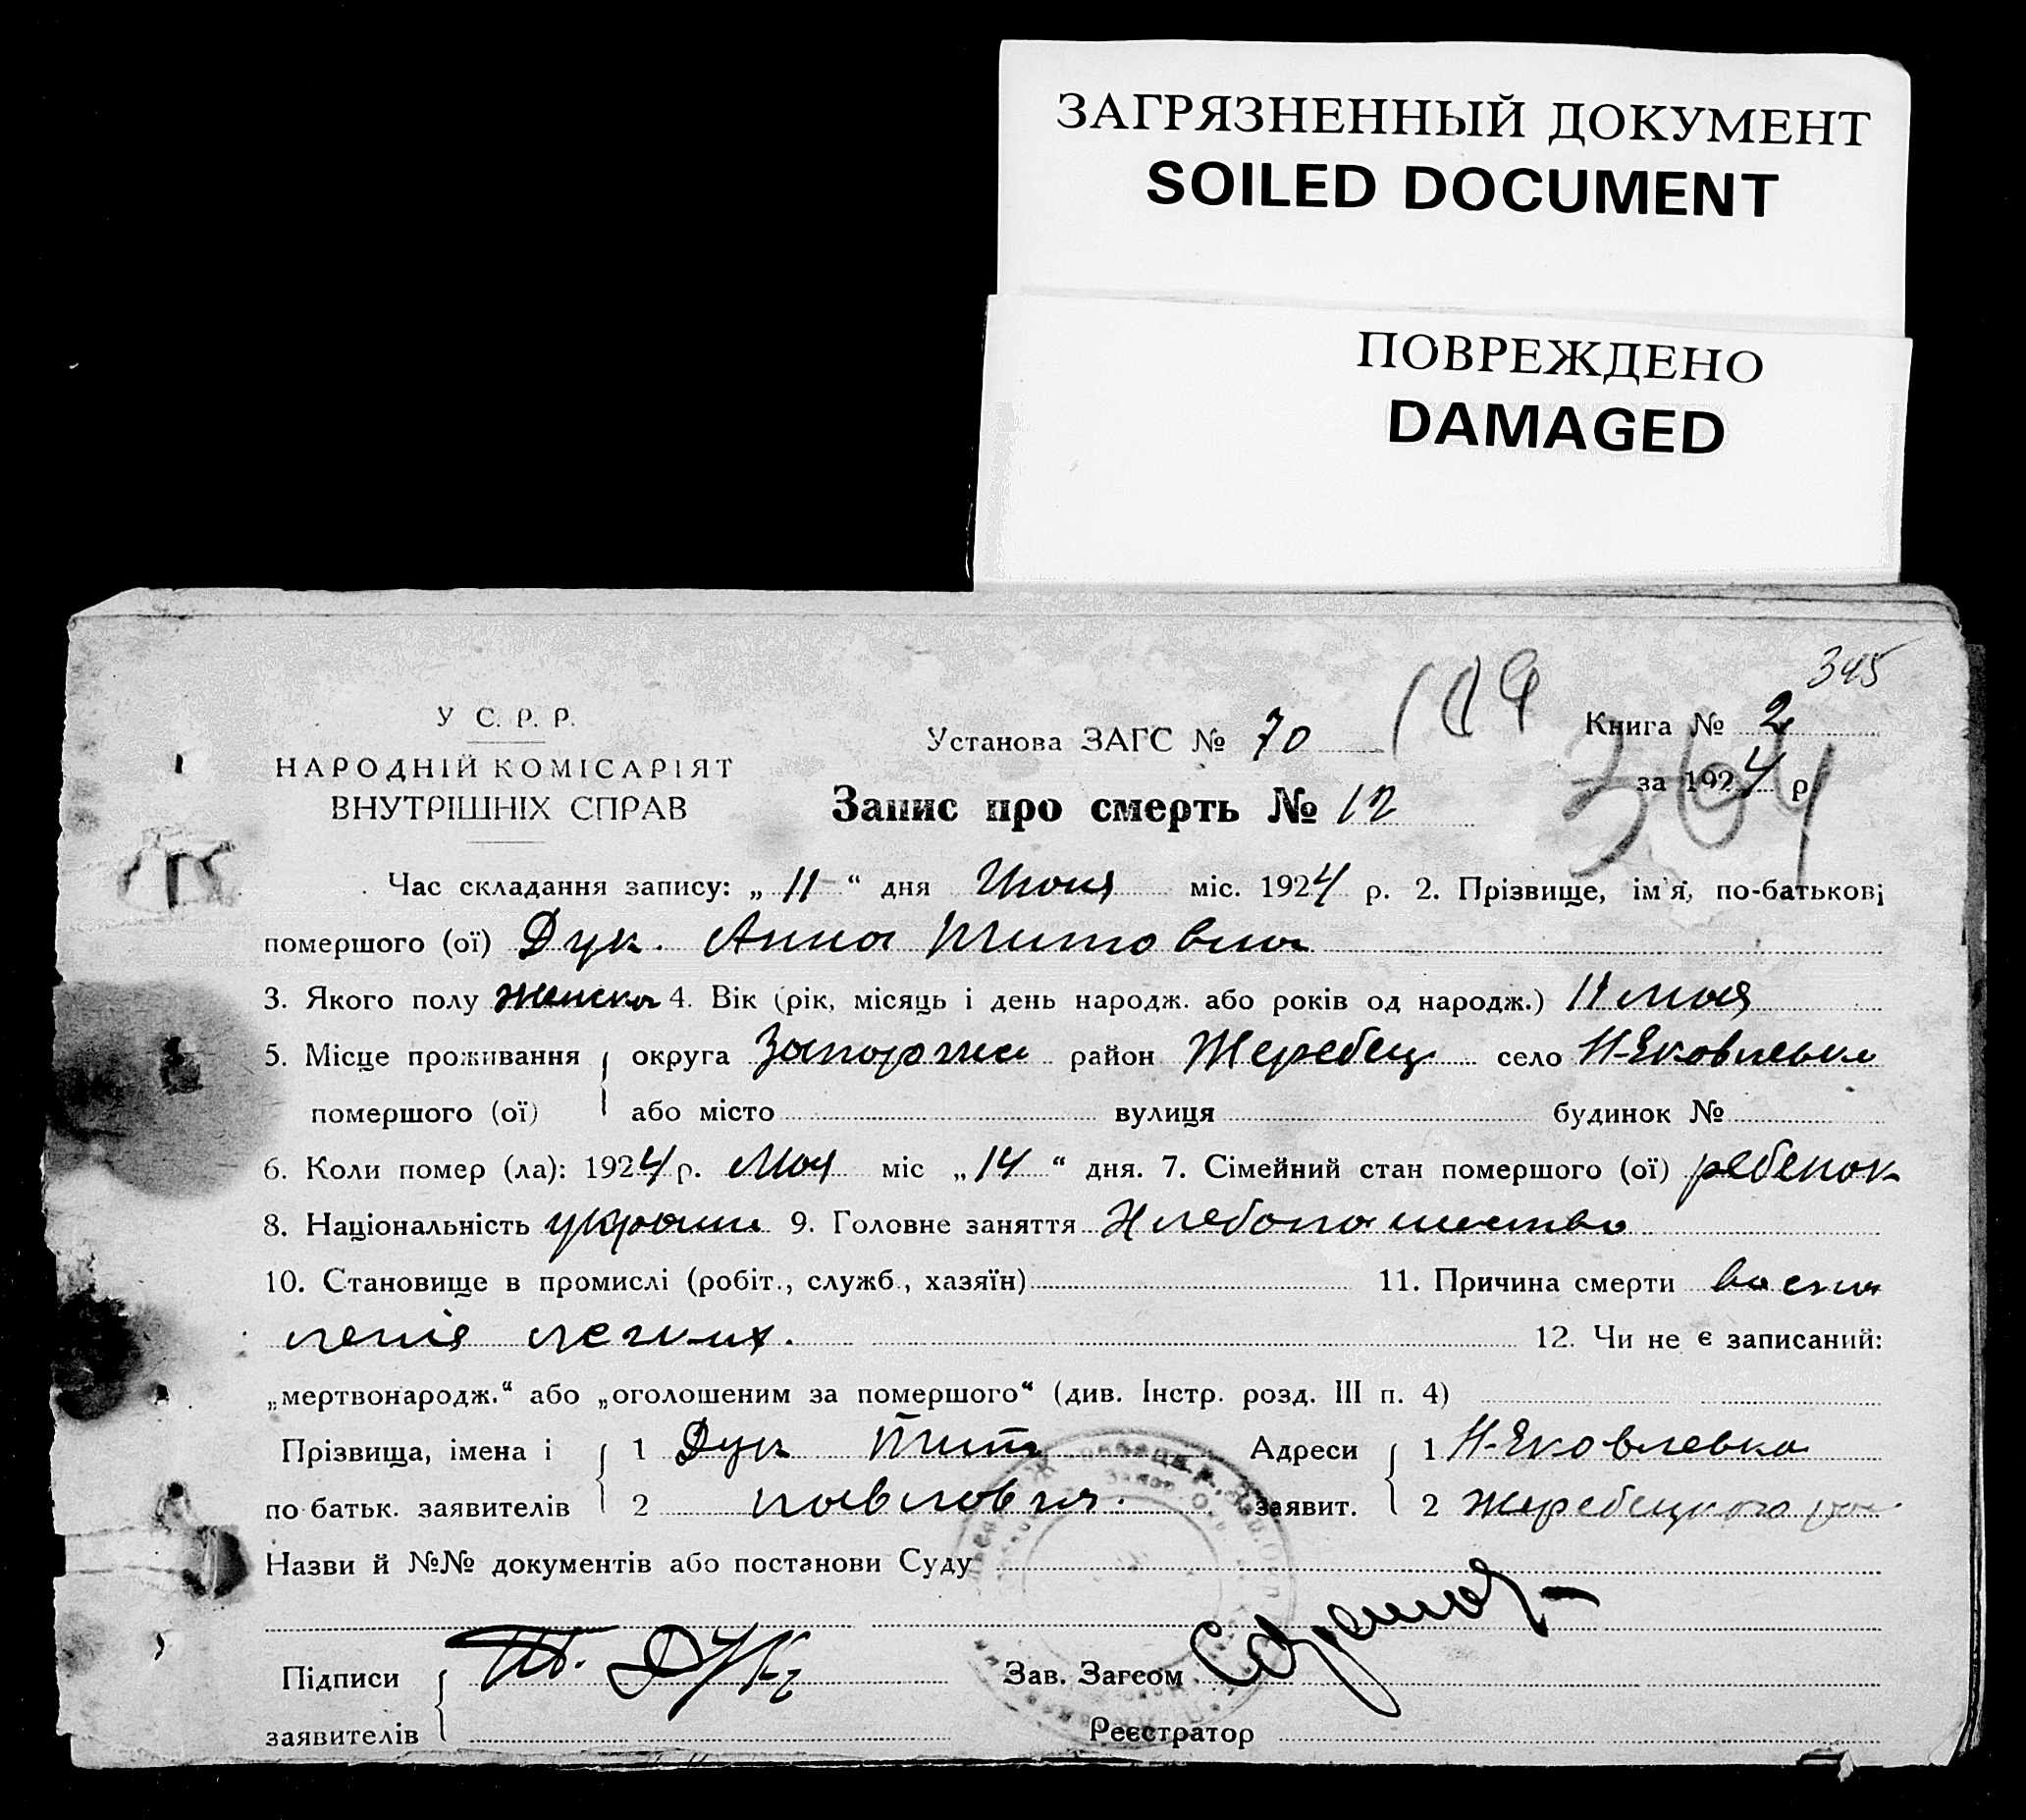 ЗАГРЯЗНЕННЫЙ ДОКУМЕНТ
SOILED DOCUMENT
ПОВРЕЖДЕНО
DAMAGED
345
У С. Р. Р.
НАРОДНІЙ КОМІСАРІЯТ
ВНУТРІШНІХ СПРАВ
Установа ЗАГС № 70
119
Книга № 2
за 1924 р
364
Запис про смерть № 12
Час складання запису: „ 11 “ дня Июня міс. 1924 р. 2. Прізвище, ім'я, по-батькові
помершого (ої) Дук. Анна Титовна
3. Якого полу женска 4. Вік (рік, місяць і день народж. або років од народж.) 11 мая
5. Місце проживання округа Запорожс район Жеребец село Н-Яковлевка
помершого (ої) або місто вулиця будинок №
6. Коли помер (ла): 1924 р. Мая міс „ 14 “ дня. 7. Сімейний стан помершого (ої) ребенок
8. Національність украин 9. Головне заняття Хлебопашество
10. Становище в промислі (робіт., служб., хазяїн) 11. Причина смерти воспа
ления легких.
12. Чи не є записаний:
„мертвонародж.“ або „оголошеним за помершого“ (див. Інстр. розд. III п. 4)
Прізвища, імена і 1 Дук Тит Адреси 1 Н-Яковлевка
по батьк. заявителів 2 Павлович. Заявит. 2 Жеребецкого рай
Назви й №№ документів або постанови Суду
Підписи Т. Дук Зав. Загсом
заявителів Реєстратор